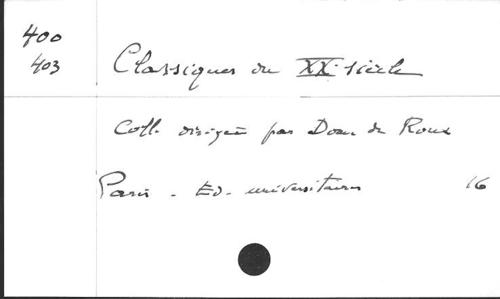 400
403 Classiques du XXe siècle
Coll. dirigée par Dom. de Roux
Paris - Ed. universitaires 16